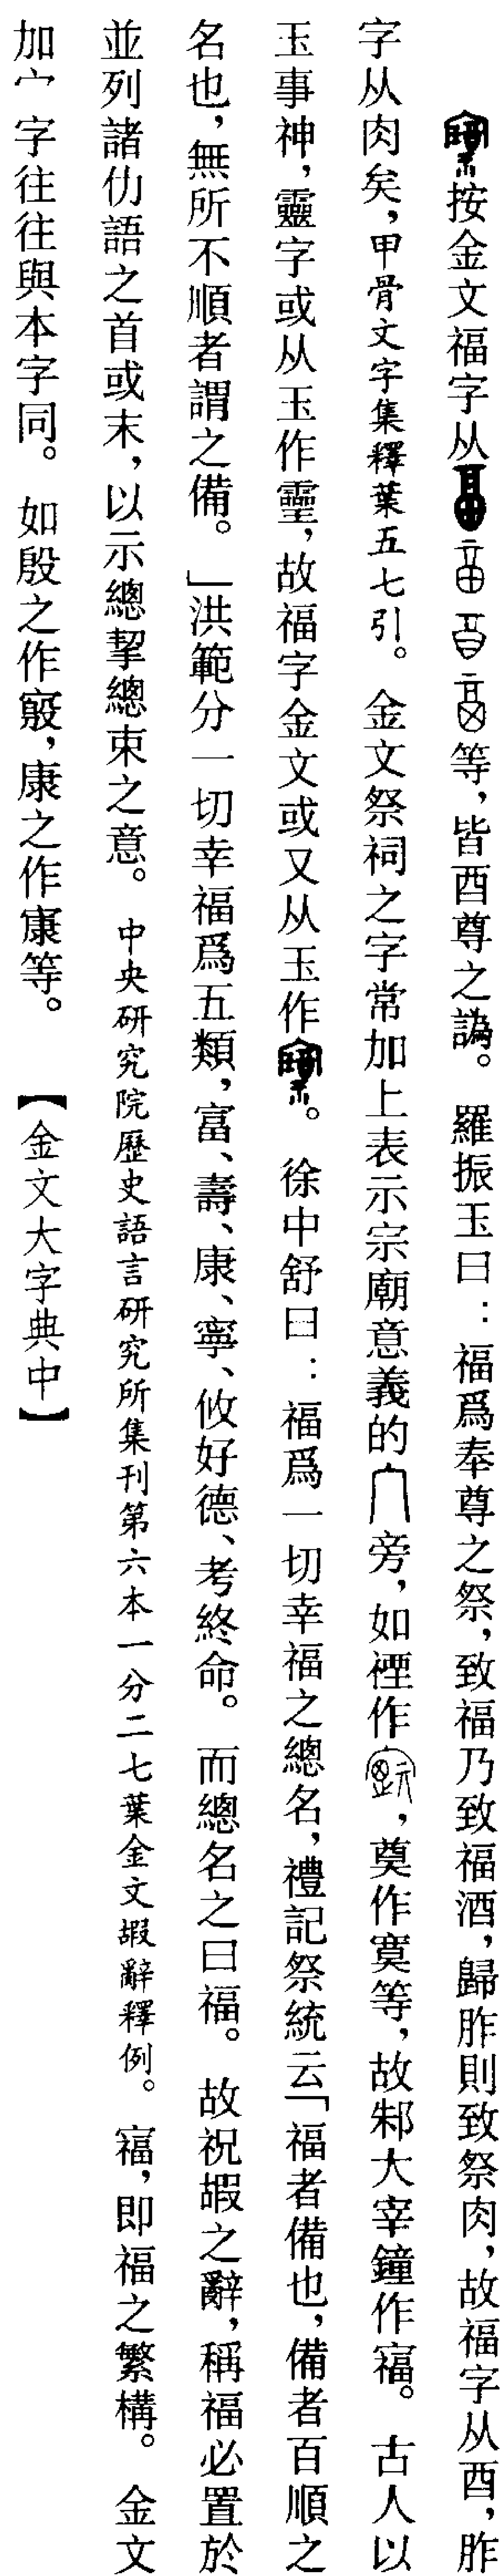 按金文福字从等，皆酉尊之譌。羅振玉曰：福爲奉尊之祭，致福乃致福酒，歸胙則致祭肉，故福字从酉，胙
字从肉矣，甲骨文字集釋葉五七引。金文祭祠之字常加上表示宗廟意義的宀旁，如禋作，奠作寞等，故邾大宰鐘作𥨍。古人以
玉事神，靈字或从玉作靈，故福字金文或又从玉作。徐中舒曰：福爲一切幸福之總名，禮記祭統云「福者備也，備者百順之
名也，無所不順者謂之備。」洪範分一切幸福爲五類，富、壽、康、寧、攸好德、考終命。而總名之曰福。故祝嘏之辭，稱福必置於
並列諸仂語之首或末，以示總挈總束之意。中央研究院歷史語言研究所集刊第六本一分二七葉金文嘏辭釋例。𥨍，即福之繁構。金文
加宀字往往與本字同。如殷之作㝨，康之作𡩷等。【金文大字典中】